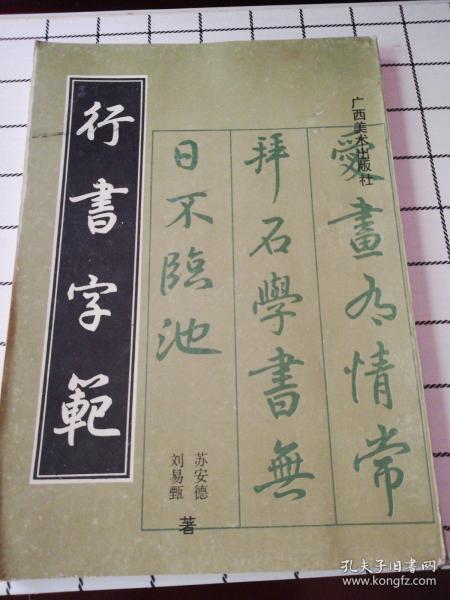 行書字範
广西美术出版社
愛畫有情常
拜石學書無
日不臨池
苏安德
刘易甄
著
孔夫子旧书网
www.kongfz.com